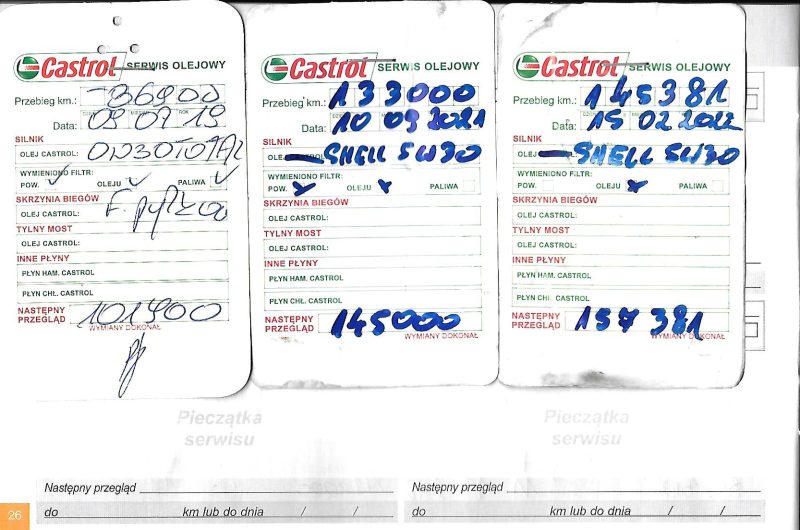 Castrol SERWIS OLEJOWY
Przebieg km.: 86900
Data: 09 07 19
SILNIK
OLEJ CASTROL: 0W30 TOTAL
WYMIENIONO FILTR:
POW. OLEJU PALIWA
SKRZYNIA BIEGÓW
OLEJ CASTROL: F. pyłkoo
TYLNY MOST
OLEJ CASTROL:
INNE PŁYNY
PŁYN HAM. CASTROL
PŁYN CHŁ. CASTROL
NASTĘPNY PRZEGLĄD 101900
WYMIANY DOKONAŁ
Castrol SERWIS OLEJOWY
Przebieg km.: 133000
Data: 10 09 2021
SILNIK
SHELL 5W30
WYMIENIONO FILTR:
POW. OLEJU PALIWA
SKRZYNIA BIEGÓW
OLEJ CASTROL:
TYLNY MOST
OLEJ CASTROL:
INNE PŁYNY
PŁYN HAM. CASTROL
PŁYN CHŁ. CASTROL
NASTĘPNY PRZEGLĄD 145000
WYMIANY DOKONAŁ
Castrol SERWIS OLEJOWY
Przebieg km.: 145381
Data: 15 02 2022
SILNIK
SHELL 5W30
WYMIENIONO FILTR:
POW. OLEJU PALIWA
SKRZYNIA BIEGÓW
OLEJ CASTROL:
TYLNY MOST
OLEJ CASTROL:
INNE PŁYNY
PŁYN HAM. CASTROL
PŁYN CHŁ. CASTROL
NASTĘPNY PRZEGLĄD 157381
WYMIANY DOKONAŁ
Pieczątka
serwisu
Następny przegląd
do km lub do dnia / /
Pieczątka
serwisu
Następny przegląd
do km lub do dnia / /
26